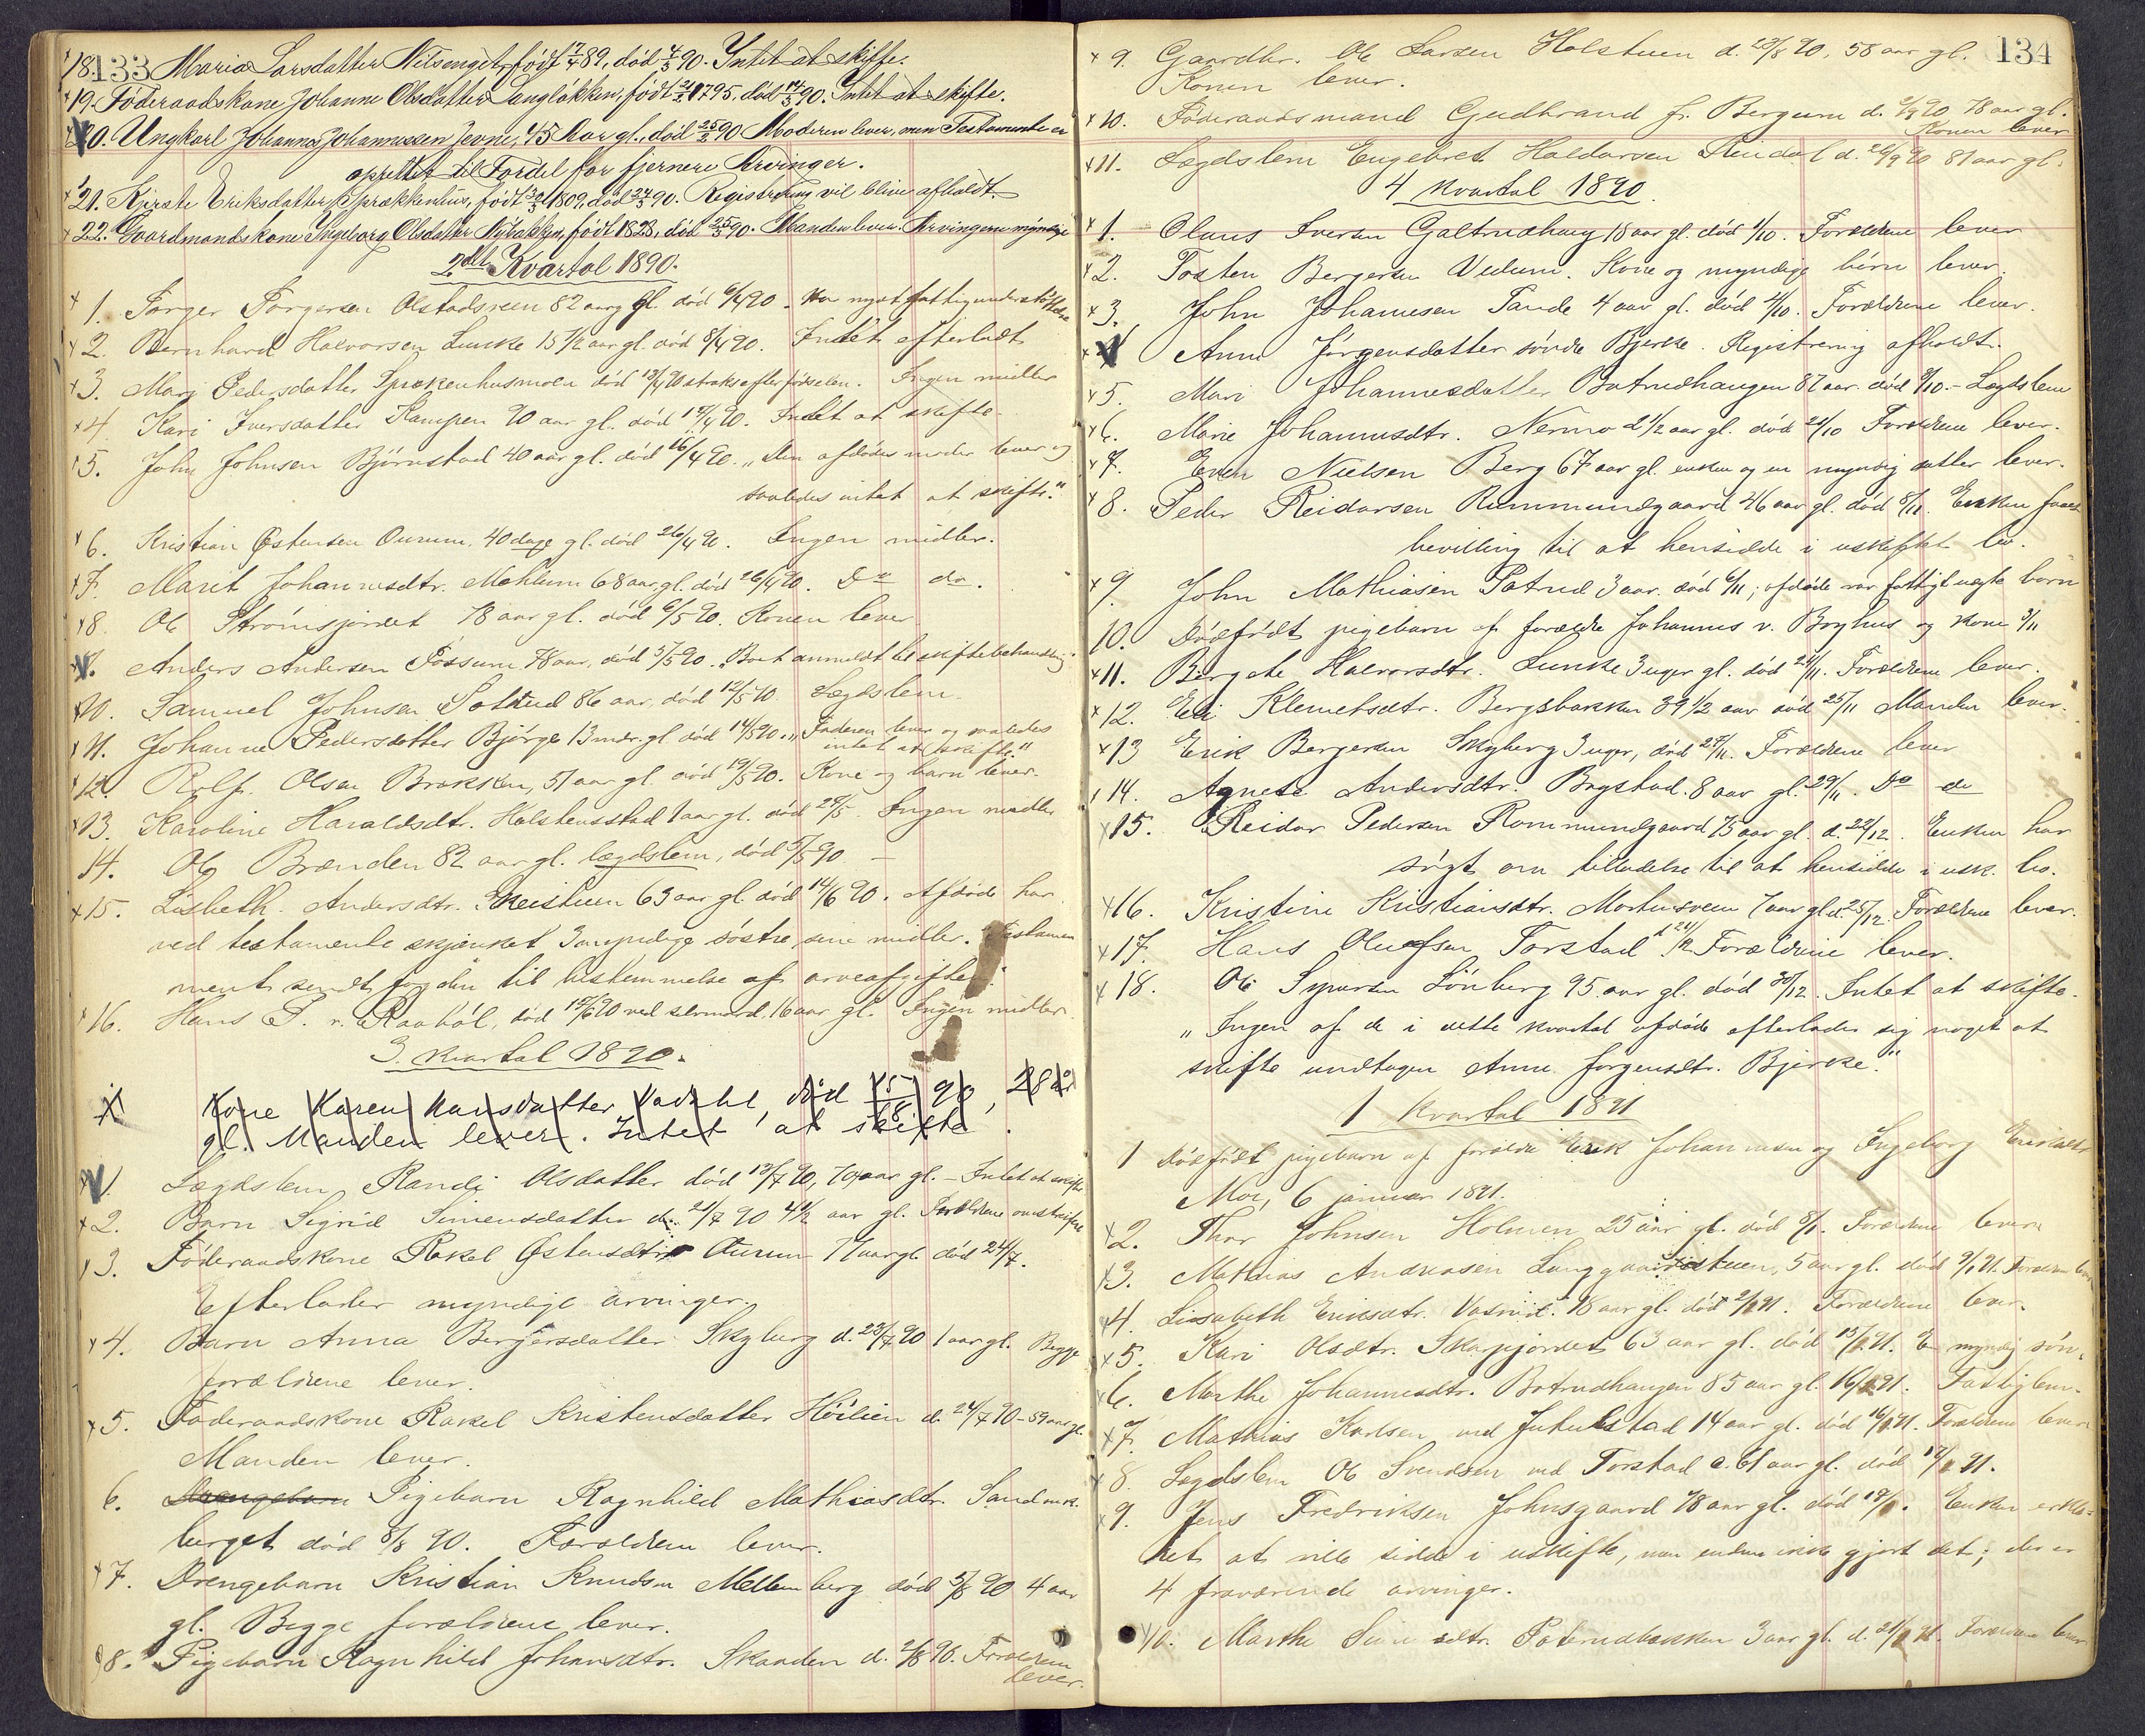 133
18. Maria Larsdatter Nilsenget, født 7/4 89, død 4/3 90. Intet at skifte.
19. Føderaadskone Johanne Olsdatter Langløkken, født 1795, død 90. Intet at skifte.
20. Ungkarl Johannes Johannessen Jevne, 45 Aar gl., død 25/2 90 Moderen lever, men Testamente er
oprettet til Fordel for fjernere Arvinger.
21. Kjerste Eriksdatter Sprækkenhus, født 1809, død 24/3 90. Registrering vil blive afholdt.
22. Gaardmandskone Ingeborg Olsdatter Nybakken, født 1828, død 25/3 90. Manden lever. Arvingerne myndige
2det Kvartal 1890.
1. Torger Torgersen Olstadsveen 82 aar gl. død 6/4 90. Har nydt fattigunderstøttelse
2. Bernhard Halvorsen Lunke 15 1/2 aar gl. død 8/4 90. Intet efterladt
3. Mari Pedersdatter Sprækenhusmoen død 13/4 90 straks efter fødselen. Ingen midler
4. Kari Iversdatter Kampen 90 aar gl. død 19/4 90. Intet at skifte.
5. John Johnsen Bjørnstad 40 aar gl. død 16/4 90. „Den afdødes moder lever og
saaledes intet at skifte."
6. Kristian Østensen Ourum. 40 dage gl. død 26/4 90. Ingen midler.
7. Marit Johannesdtr. Mæhlum 68 aar gl. død 26/4 90. Do do.
8. Ole Strömsjordet 78 aar gl. død 6/5 90. Konen lever
9. Anders Andersen Fossum 78 aar, død 3/5 90. „Boet anmeldt til skiftebehandling"
10. Samuel Johnsen Sotrud 86 aar, død 12/5 90 Lægdslem.
11. Johanne Pedersdatter Bjørge 13 mdr. gl død 14/5 90. „Faderen lever og saaledes
intet at skifte."
12. Rolf Olsen Brækken, 51 aar gl. død 19/5 90. Kone og børn lever.
13. Karoline Haraldsdt. Holstensstad 1 aar gl. død 28/5. Ingen midler
14. Ole Brænden 82 aar gl. lægdslem, død 5/5 90. –
15. Lisbeth Andersdtr. Skeistuen 63 aar gl. død 14/6 90. Afdøde har
ved testamente skjænket 3 myndige søstre sine midler. Testamen
ment sendt fogden til bestemmelse af arveafgiften.
16. Hans P. v. Raabøl, død 19/6 90 ved selvmord. 16 aar gl. Ingen midler.
3. kvartal 1890.
Kone Karen Hansdatter død 15/8 90, 28 år
gl. Manden lever. Intet at skifte.
1. Lægdslem Randi Olsdatter død 13/7 90, 70 aar gl. – Intet at skifte
2. Barn Sigrid Simensdatter d. 21/7 90 4 1/2 aar gl. Forældrene
3. Føderaadskone Rakel Østensdtr Ourum 77 aar gl død 24/7.
Efterlader myndige arvinger.
4. Barn Anna Bergersdatter Skyberg d. 23/7 90 1 aar gl. Begge
forældrene lever.
5. Føderaadskone Rakel Kristensdatter Höilien d. 24/7 90 – 59 aar gl.
Manden lever.
6. Drengebarn Pigebarn Ragnhild Mathiasdtr. Sandmæk
berget død 8/8 90. Forældrene lever.
7. Drengebarn Kristian Knudsen Mellemberg død 5/8 90 4 aar
gl. Begge forældrene lever.
8. Pigebarn Ragnhild Johansdtr. Skaaden d. 2/8 90. Forældrene
lever.
134
9. Gaardbr. Ole Larsen Holstuen d. 23/8 90, 58 aar gl.
Konen lever.
10. Føderaadsmand Gudbrand fr. Bergum d. 2/9 90 78 aar gl.
Konen lever
11. Lægdslem Engebret Haldorsen Rindal d. 26/9 90 81 aar gl.
4 kvartal 1890.
1. Olaus Iversen Galtrudhaug 18 aar gl. død 1/10. Forældrene lever
2. Tosten Bergersen Vedum. Kone og myndige børn lever.
3. John Johannesen Tande 4 aar gl. død 4/10. Forældrene lever.
4. Anne Jørgensdatter søndre Bjerke. Registrering afholdt.
5. Mari Johannesdatter Botrudhaugen 87 aar død 9/10. – Lægdslem
6. Marie Johannesdtr. Nermo 2 1/2 aar gl. død 21/10 Forældrene lever.
7. Even Nielsen Berg 67 aar gl. enken og en myndig datter lever.
8. Peder Reidarsen Rommundgaard 46 aar gl. død 8/11. Enken faaet
bevilling til at hensidde i uskiftet bo.
9. John Mathiasen Satrud 3 aar død 6/11; afdøde var fattigt uægte barn
10. Dødfødt pigebarn af forældre Johannes v. Boghus og kone 3/11
11. Bergete Halvorsdtr. Lunke 3 uger gl. død 24/11. Forældrene lever.
12. Eli Klemetsdtr. Bergsbakken 39 1/2 aar død 25/11 Manden lever.
13 Erik Bergersen Skyberg 3 uger, død 27/11. Forældrene lever
14. Agnete Andersdtr. Bøgstad. 8 aar gl. 29/11. Do do
15. Reidar Pedersen Rommundgaard 75 aar gl. d. 22/12. Enken har
søgt om tilladelse til at hensidde i usk. bo.
16. Kristine Kristiansdtr. Mortensveen 7 aar gl d. 25/12. Forældrene lever.
17. Hans Olufsen Torstad d 21/12 Forældrene lever.
18. Ole Syversen Lönberg 95 aar gl. død 30/12. Intet at skifte.
„Ingen af de i dette kvartal afdøde efterlader sig noget at
skifte undtagen Anne Jørgensdtr. Bjerke."
1 kvartal 1891
1 Dødfødt pigebarn af forældre Erik Johannesen og Ingeborg Eriksdtr
Moe, 6 januar 1891.
2. Thor Johnsen Holmen 25 aar gl. død 8/1. Forældrene lever
3. Mathias Andreasen Langgaardstuen, 5 aar gl. død 9/1 91. Forældrene lever
4. Lisabeth Eriksdtr. 18 aar gl. død 2/1 91. Forældrene lever.
5. Kari Olsdtr. Skapjordet 63 aar gl. død 15/1 91. En myndig søn.
6. Marthe Johannesdtr. Botrudhaugen 85 aar gl. 16/1 91. Fattiglem.
7. Mathias Karlsen ved Jutulstad 14 aar gl. død 16/1 91. Forældrene lever
8. Lægdslem Ole Svendsen ved Torstad c. 61 aar gl. død 17/1 91.
9. Jens Fredriksen Johnsgaard 78 aar gl. død 19/1. Enken erklæ-
ret at ville sidde i uskifte, men endnu ikke gjort det; der er
4 fraværende arvinger.
10. Marthe Simensdtr. Saterudbakken 3 aar gl. d. 21/1 91. Forældrene lever